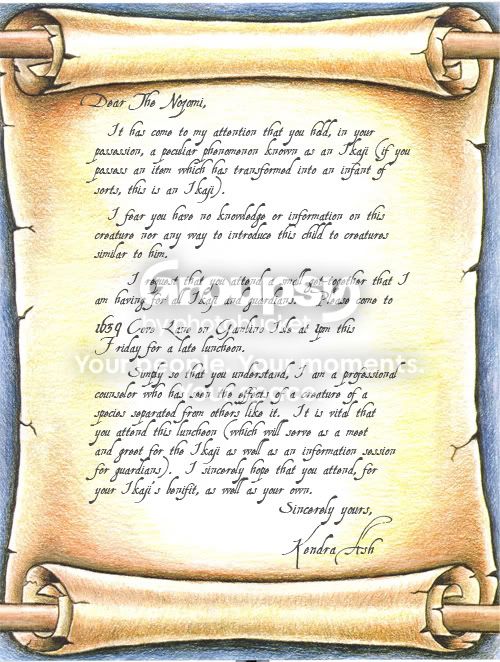 Dear The Nozomi,
It has come to my attention that you held, in your
possession, a peculiar phenomenon known as an Ikaji (if you
possess an item which has transformed into an infant of
sorts, this is an Ikaji).
I fear you have no knowledge or information on this
creature nor any way to introduce this child to creatures
similar to him.
I request that you attend a small get-together that I
am having for all Ikaji and guardians. Please come to
1639 Lane on Gambino Isle at 1pm this
Friday for a late luncheon.
Simply so that you understand, I am a professional
counselor who has seen the effects of a creature of a
species separated from others like it. It is vital that
you attend this luncheon (which will serve as a meet
and greet for the Ikaji as well as an information session
for guardians). I sincerely hope that you attend, for
your Ikaji's benifit, as well as your own.
Sincerely yours,
Kendra Ash
by photobucket
Your people. Your moments.